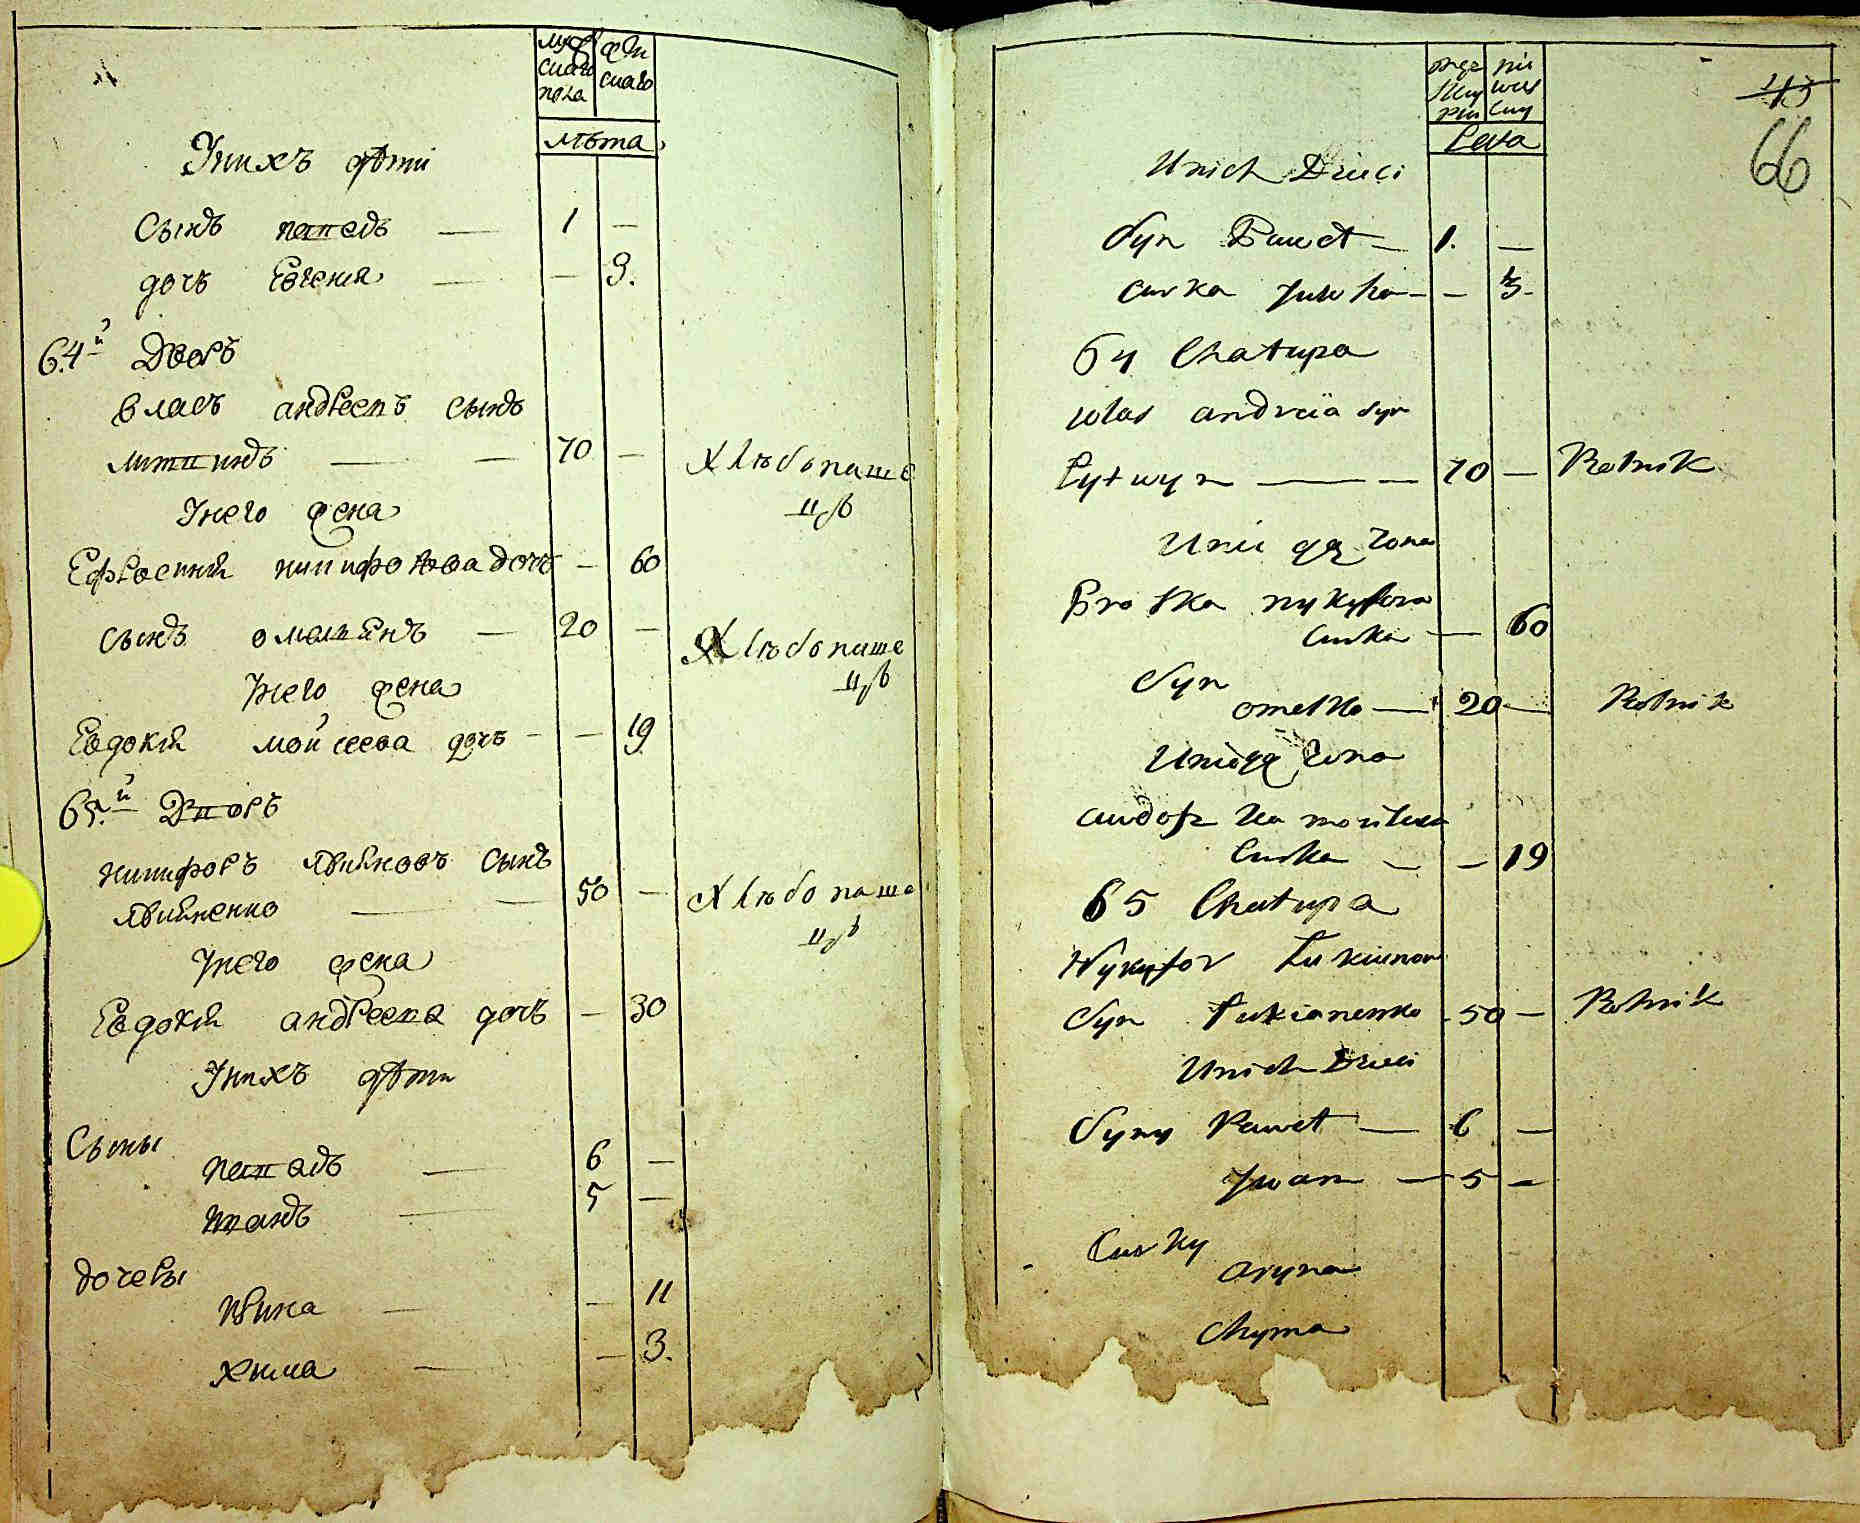 мужскаго пола
женскаго
лѣта
У нихъ дѣти
Сынъ павелъ — 1 —
дочь Евгенія — — 3.
64.й Дворъ
власъ андреевъ сынъ
литвинъ — — 70 — Хлѣбопаше
цъ
У него жена
Ефросинія никифорова дочь — 60
сынъ омельянъ — 20 — Хлѣбопаше
цъ
У него жена
Евдокія мойсеева дочь — — 19
65.й Дворъ
никифоръ лукьяновъ сынъ
лукьяненко — — 50 — Хлѣбопаше
цъ
У него жена
Евдокія андреева дочь — 30
У нихъ дѣти
Сыны
павелъ — 6 —
иванъ — 5 —
дочеры
ирина — — 11
хима — — 3.
45
66
męz
skuy
Lata
Unich Dzieci
Syn Paweł — 1. —
curka — — 3.
64 Chałupa
wlas andreia syn
Lytwyn — — 70 — Rolnik
Uniegą żona
Proska nykyfora
curka — 60
Syn
omelko — 20 — Rolnik
Uniegą żona
curka — — 19
65 Chałupa
Nykyfor Łukianow
Syn Łukianenko 50 — Rolnik
Unich Dzieci
Syny Paweł — 6 —
Jwan — 5 —
Curky
aryna
Chyma